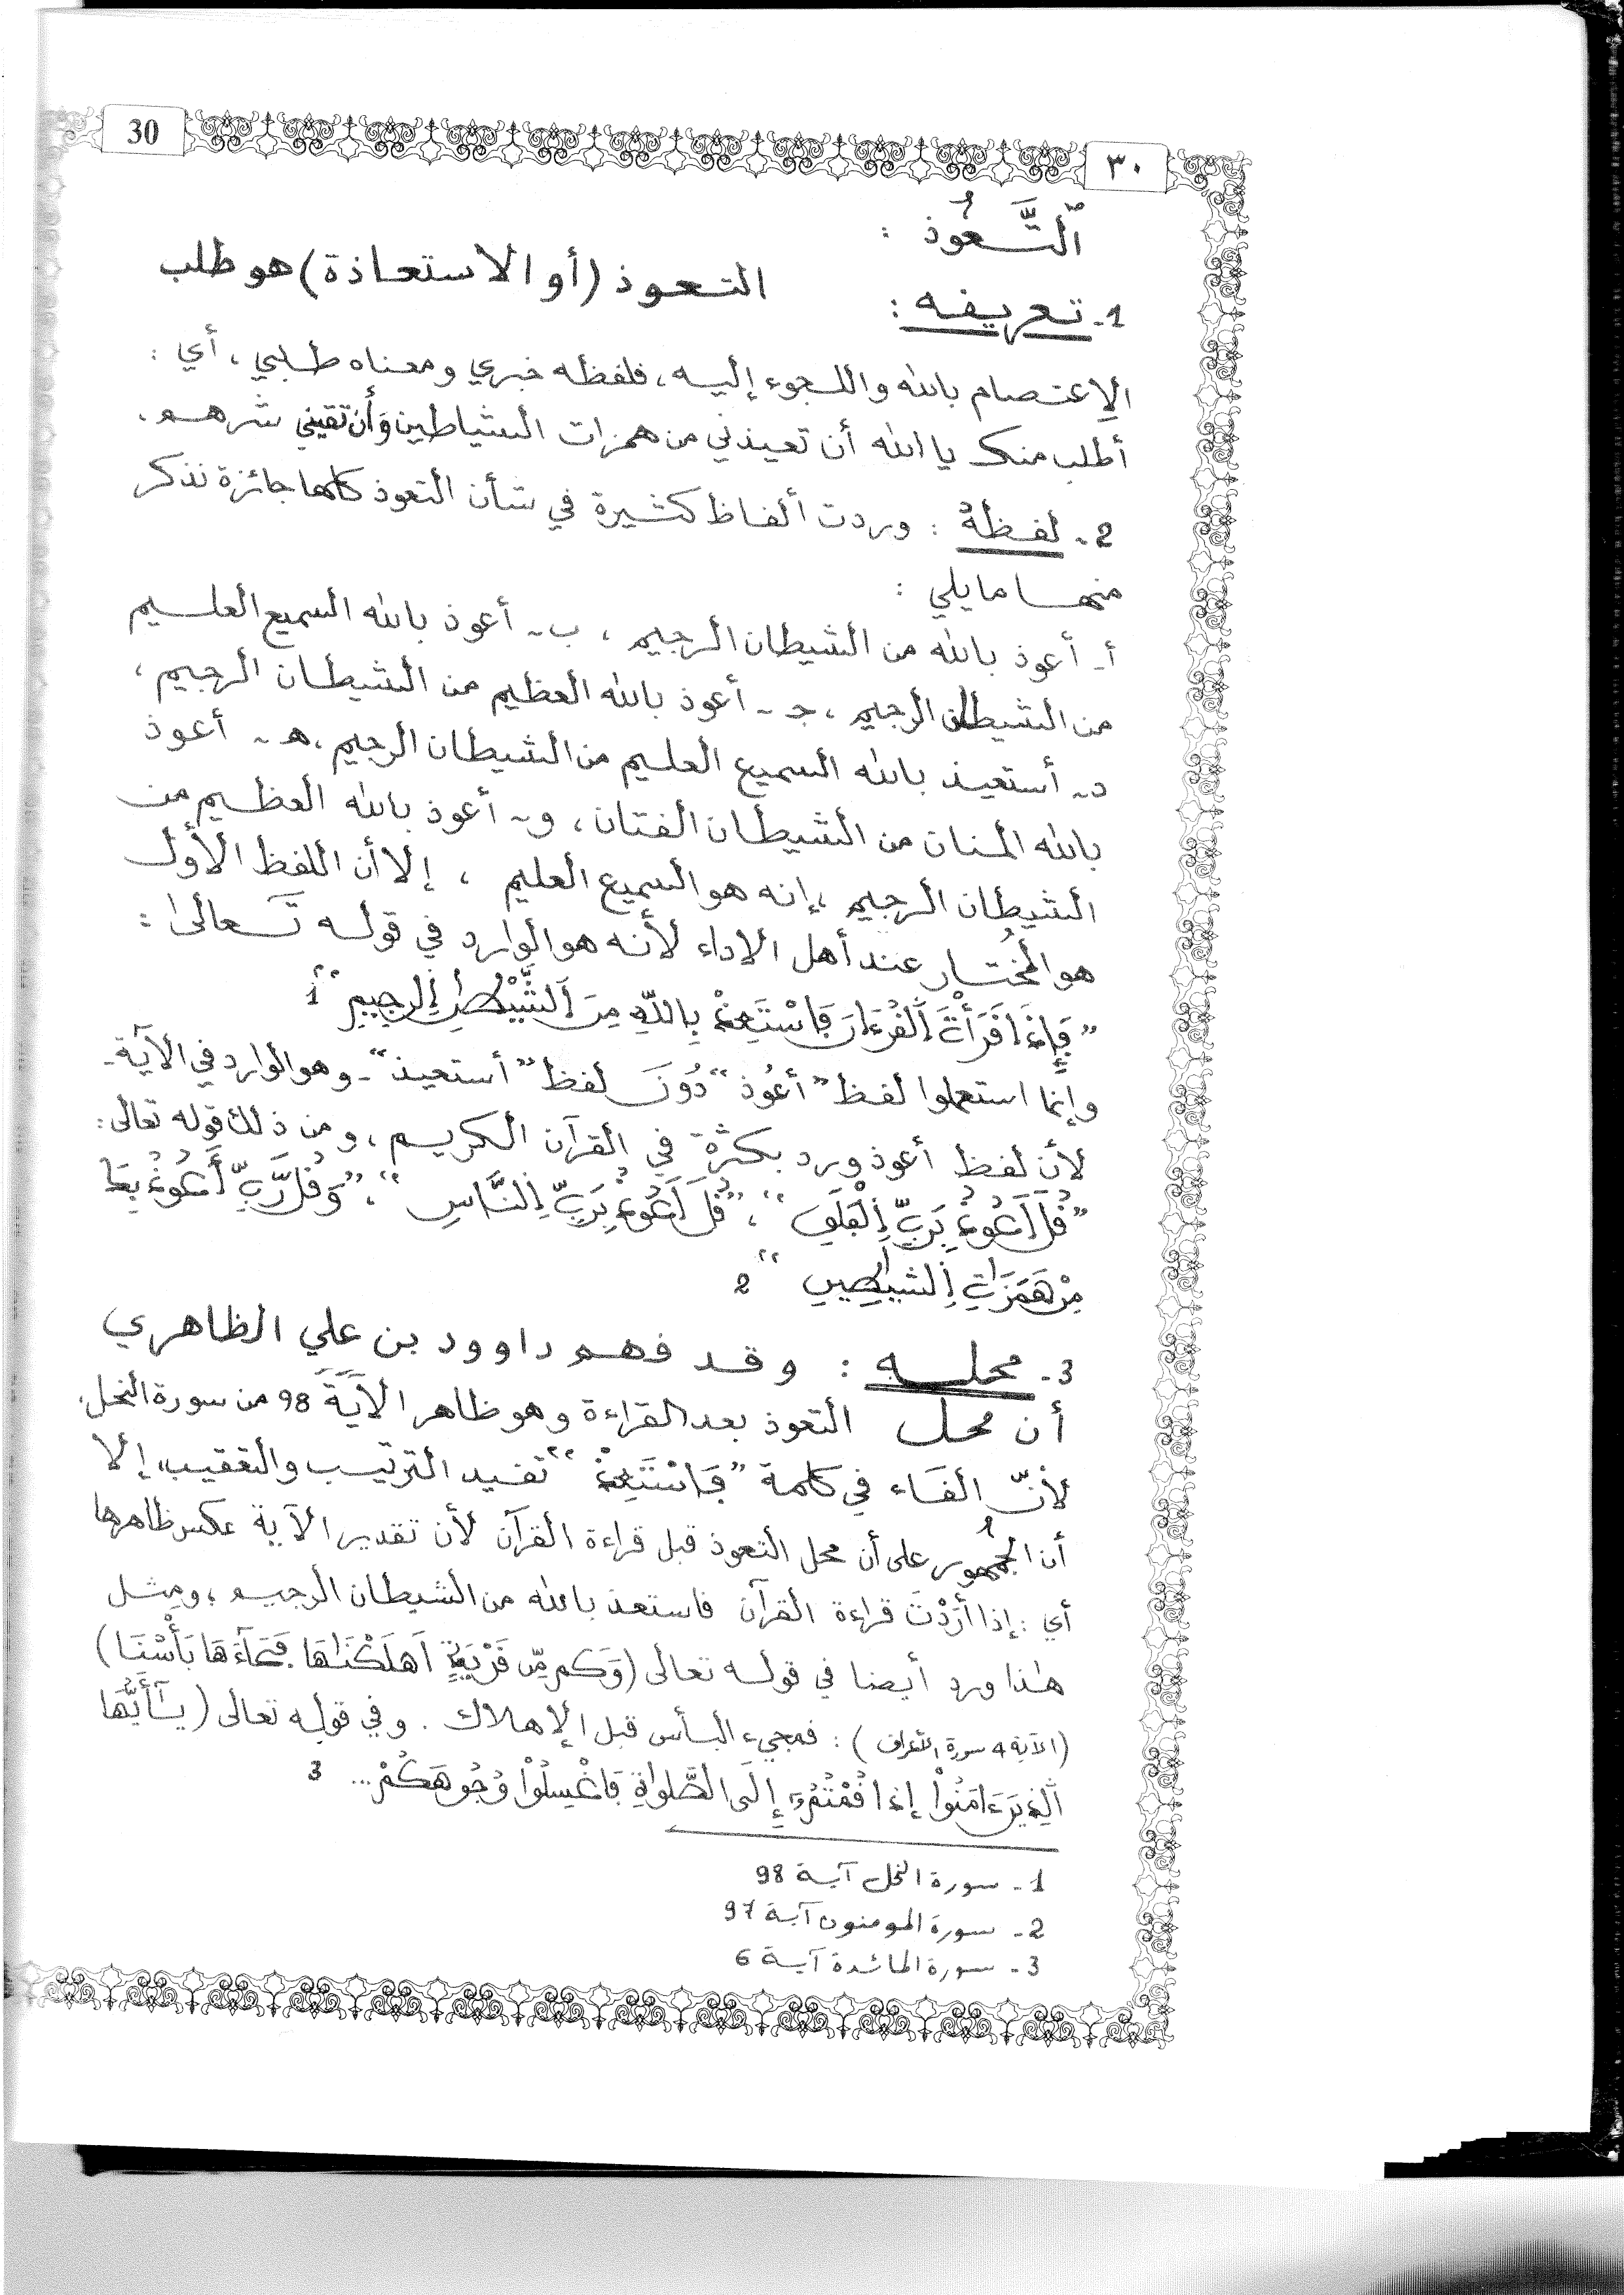 30
٣٠
التَّعَوُّذ :
1- تعريفه : التعوذ (أو الاستعاذة) هو طلب
الإعتصام بالله واللجوء إليه، فلفظه خبري ومعناه طلبي، أي :
أطلب منك يا الله أن تعيذني من همزات الشياطين وَأن تقيني شرهم.
2- لفظهُ : وردت ألفاظ كثيرة في شأن التعوذ كلها جائزة نذكر
منها ما يلي :
أ- أعوذ بالله من الشيطان الرجيم ، ب- أعوذ بالله السميع العليم
من الشيطان الرجيم ، جـ - أعوذ بالله العظيم من الشيطان الرجيم ،
د- أستعيذ بالله السميع العليم من الشيطان الرجيم ، هـ - أعوذ
بالله المنان من الشيطان الفتان ، و- أعوذ بالله العظيم من
الشيطان الرجيم ، إنه هو السميع العليم ، إلا أن اللفظ الأول
هو المُختار عند أهل الاداء لأنه هو الوارد في قوله تَعالىٰ :
"فَإِذَا قَرَأْتَ اَلْقُرْءَانَ فَاسْتَعِذْ بِاللَّهِ مِنَ اَلشَّيْطَٰنِ اِلرجيمِ" 1
وإنما استعملوا لفظ "أعُوذ" دُونَ لفظ "أستعيذ" - وهو الوارد في الآية -
لأن لفظ أعوذ ورد بكثرة في القرآن الكريم ، ومن ذلك قوله تعالى :
"قُلَ اَعُوذُ بِرَبِّ اِلْفَلَقِ" ، "قُلَ اَعُوذُ بِرَبِّ اِلنَّاسِ" ، "وَقُل رَّبِّ أَعُوذُ بِكَ
مِنْ هَمَزَاتِ اِلشيَٰطِينِ" 2
3- محله : وقد فهم داوود بن علي الظاهري
أن محل التعوذ بعد القراءة وهو ظاهر الآيَة 98 من سورة النحل.
لأنّ الفَاء في كلمة "فَاسْتَعِذْ" تفيد الترتيب والتعقيب، إلا
أن الجُمهور على أن محل التعوذ قبل قراءة القرآن لأن تقدير الآية عكس ظاهرها
أي : إذا أرَدْتَ قراءة القرآن فاستعذ بالله من الشيطان الرجيم ، ومِثل
هٰذا ورد أيضا في قوله تعالى (وَكَم مِّن قَرْيَةٍ اَهْلَكْنَٰهَا فَجَآءَهَا بَأْسُنَا)
(الآية 4 سورة الأعراف) : فمجيء البأس قبل الإهلاك . وفي قوله تعالى (يَٰٓأَيُّهَا
اَلذِينَ ءَامَنُوٓاْ إِذَا قُمْتُمُۥٓ إِلَى اَلصَّلَوٰةِ فَاغْسِلُواْ وُجُوهَكُمْ... 3
1- سورة النحل آية 98
2- سورة المومنون آية 97
3- سورة المائدة آية 6